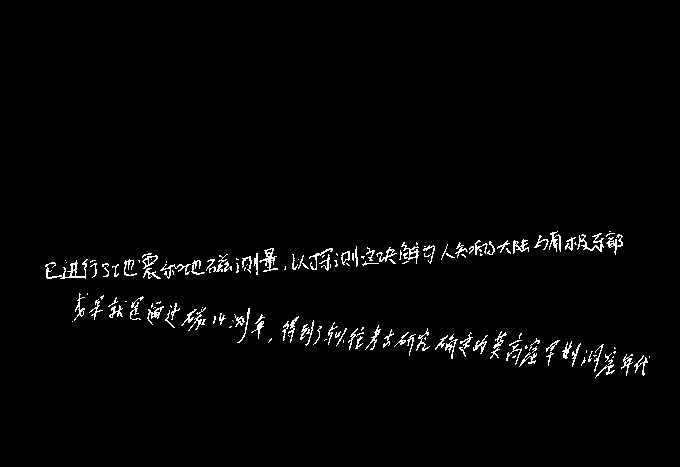 已进行了地震和地磁测量，以探测这块鲜为人知的大陆与南极东部
成果就是通过碳14测年，得到了纠往考古研究确定的莫高窟早期洞窟年代